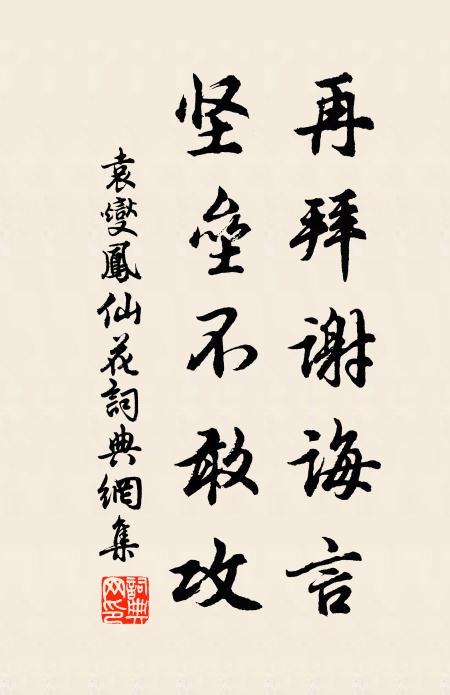 再拜谢诲言
坚垒不敢攻
袁燮鳳仙花詞典網集
詞典网印